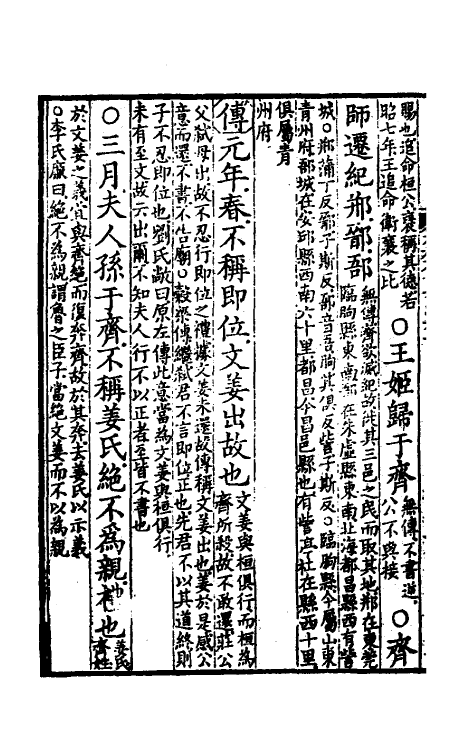 賜也追命桓公襃稱其德若
昭七年王追命衛襄之比
○王姬歸于齊
無傳不書逆
公不與接
○齊
師遷紀郱鄑郚
無傳齊欲滅紀故徙其三邑之民而取其地郱在東莞
臨朐縣東南郚在朱虛縣東南北海都昌縣西有訾
城○郱蒲丁反鄑子斯反郚音吾朐其俱反訾子斯反○臨朐縣今屬山東
青州府郚城在安丘縣西南六十里都昌今昌邑縣也有訾亭社在縣西十里
俱屬青
州府
傳元年春不稱即位文姜出故也
文姜與桓俱行而桓為
齊所殺故不敢還莊公
父弒母出故不忍行即位之禮據文姜未還故傳稱文姜出也姜於是感公
意而還不書不告廟○穀梁傳繼弒君不言即位正也先君不以其道終則
子不忍即位也劉氏敞曰原左傳此意當為文姜與桓俱行
未有至文故云出爾不知夫人行不以正者至皆不書也
○三月夫人孫于齊不稱姜氏絕不為親禮也
姜氏
齊姓
於文姜之義宜與齊絕而復奔齊故於其奔去姜氏以示義
○李氏廉曰絕不為親謂魯之臣子當絕文姜而不以為親